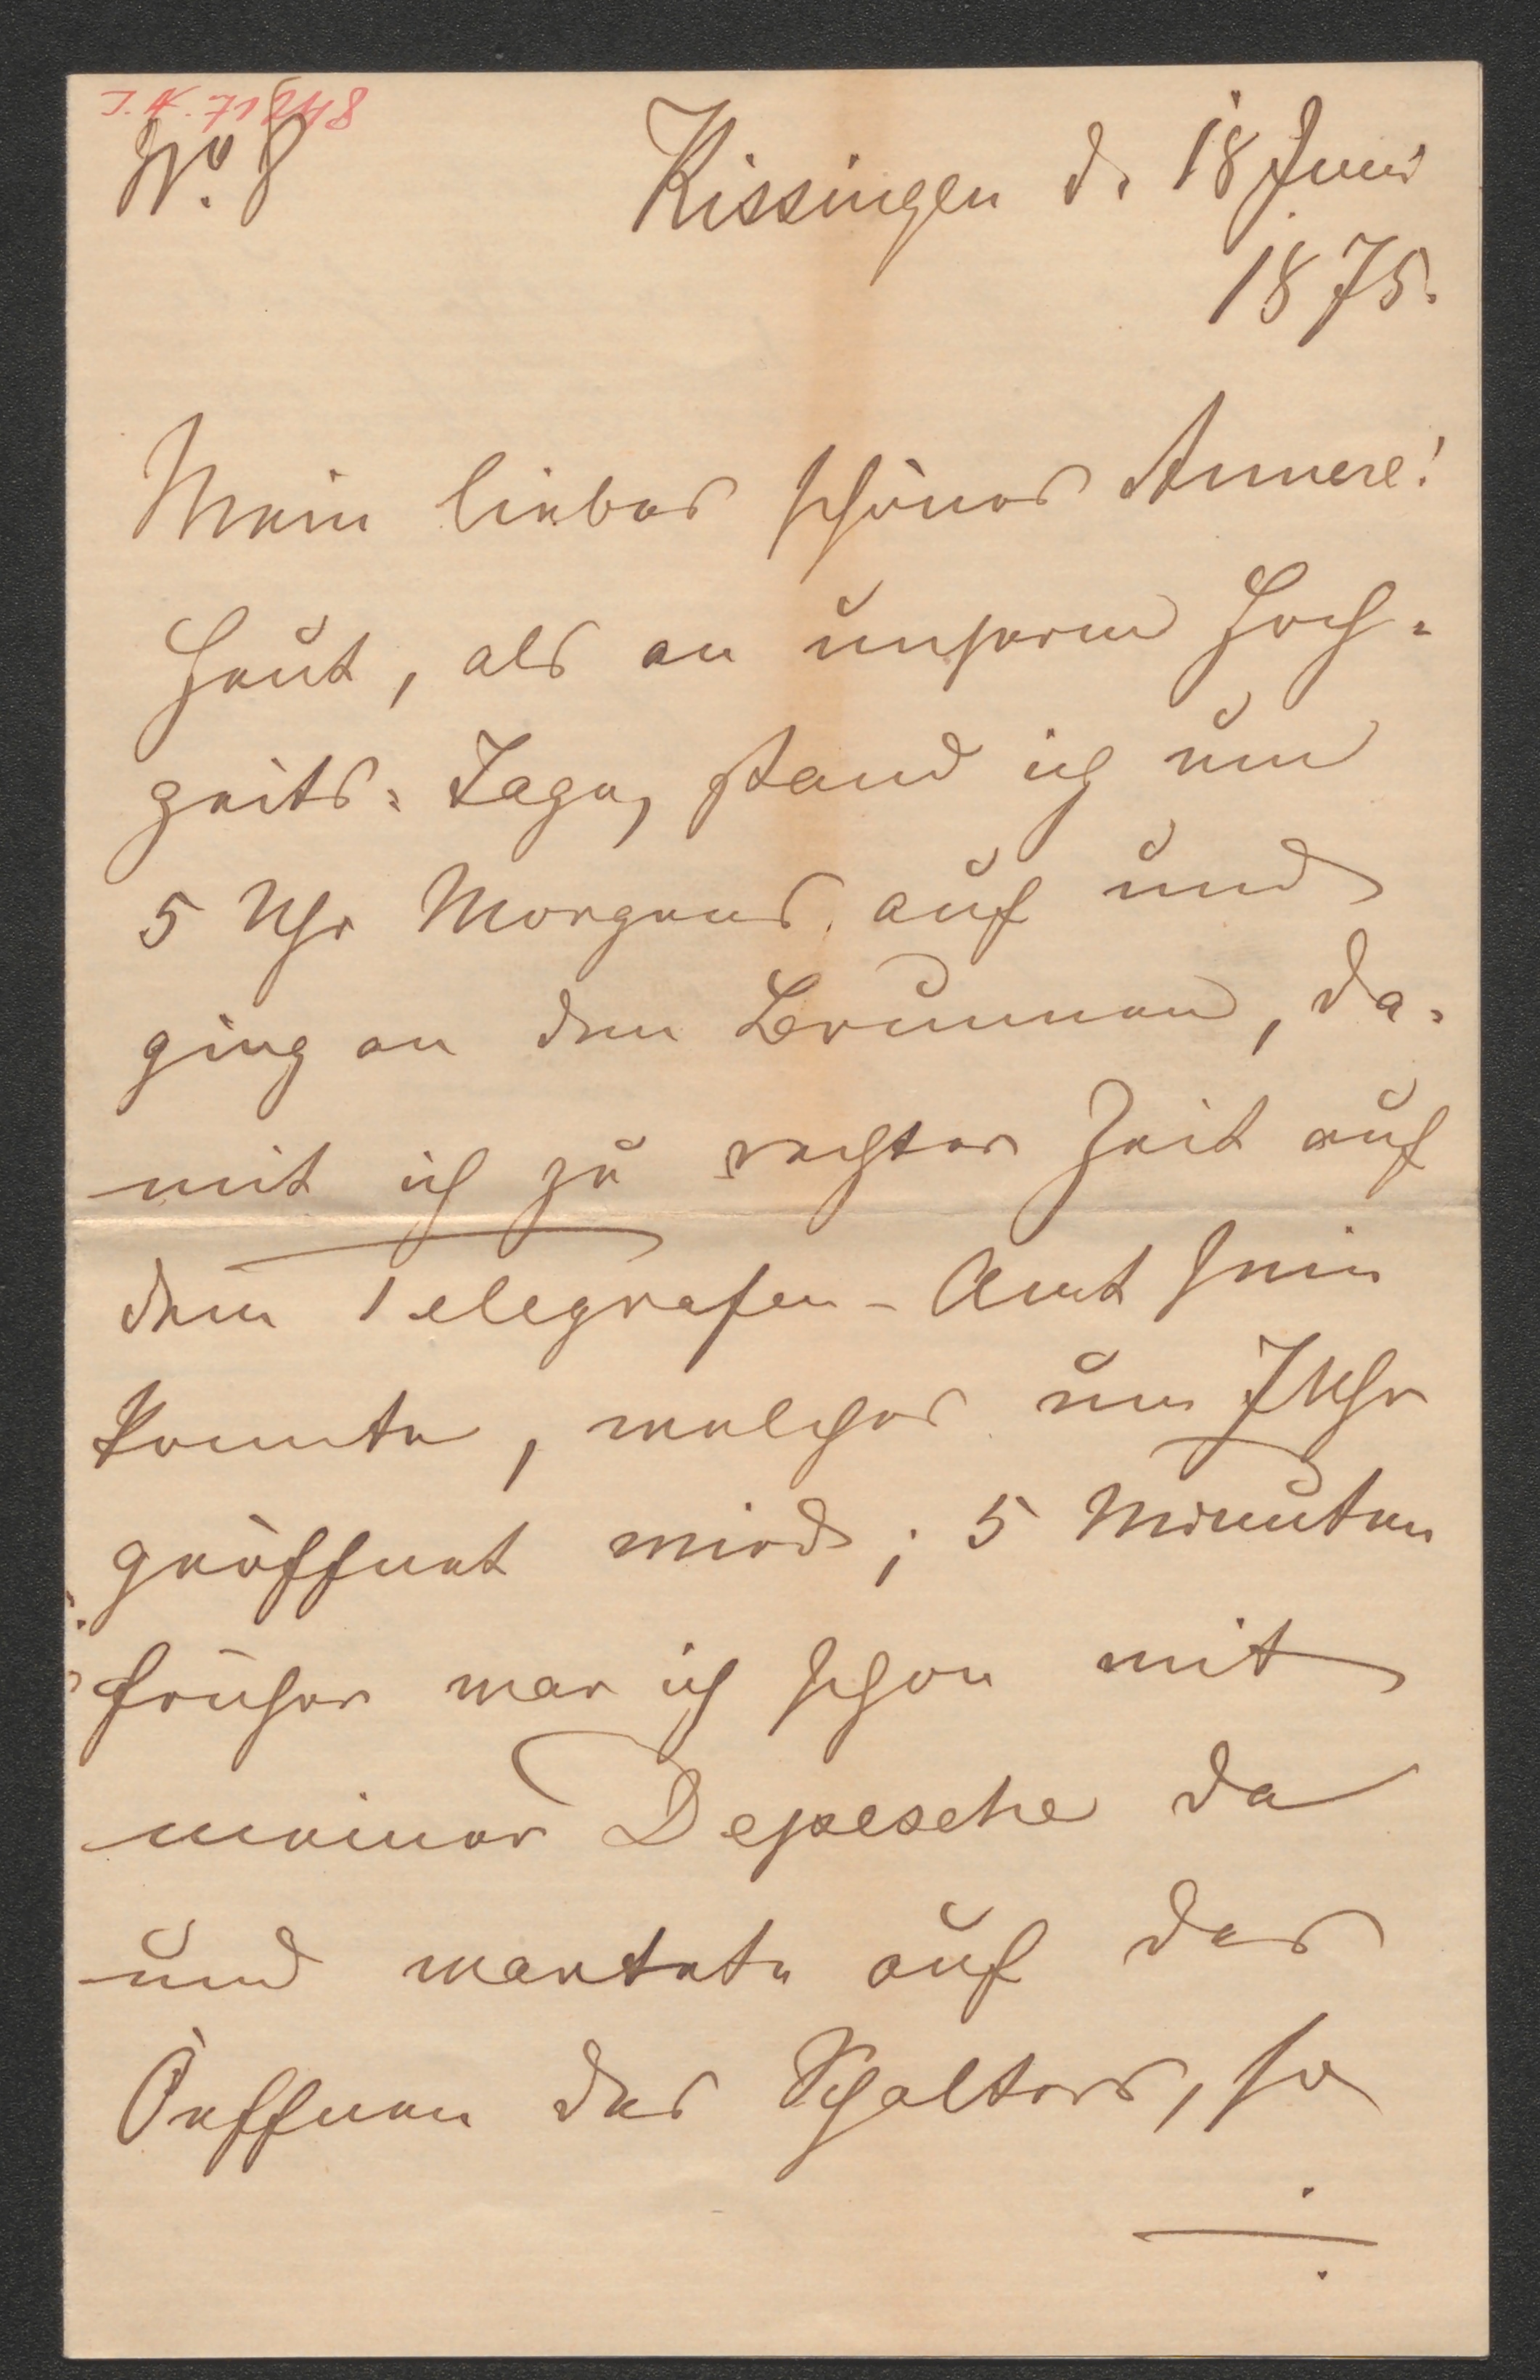 J. N. 71248
No. 8
Kissingen d. 18 Juni
1875.
Mein liebes schönes Annerl!
Heut, als an unserem Hoch-
zeits-Tage, stand ich um
5 Uhr Morgens auf und
ging an den Brunnen, da-
mit ich zu rechter Zeit auf
dem Telegrafen-Amt sein
konnte, welches um 7 Uhr
geöffnet wird; 5 Minuten
früher war ich schon mit
meiner Depesche da
und wartete auf das
Öeffnen des Schalters, so